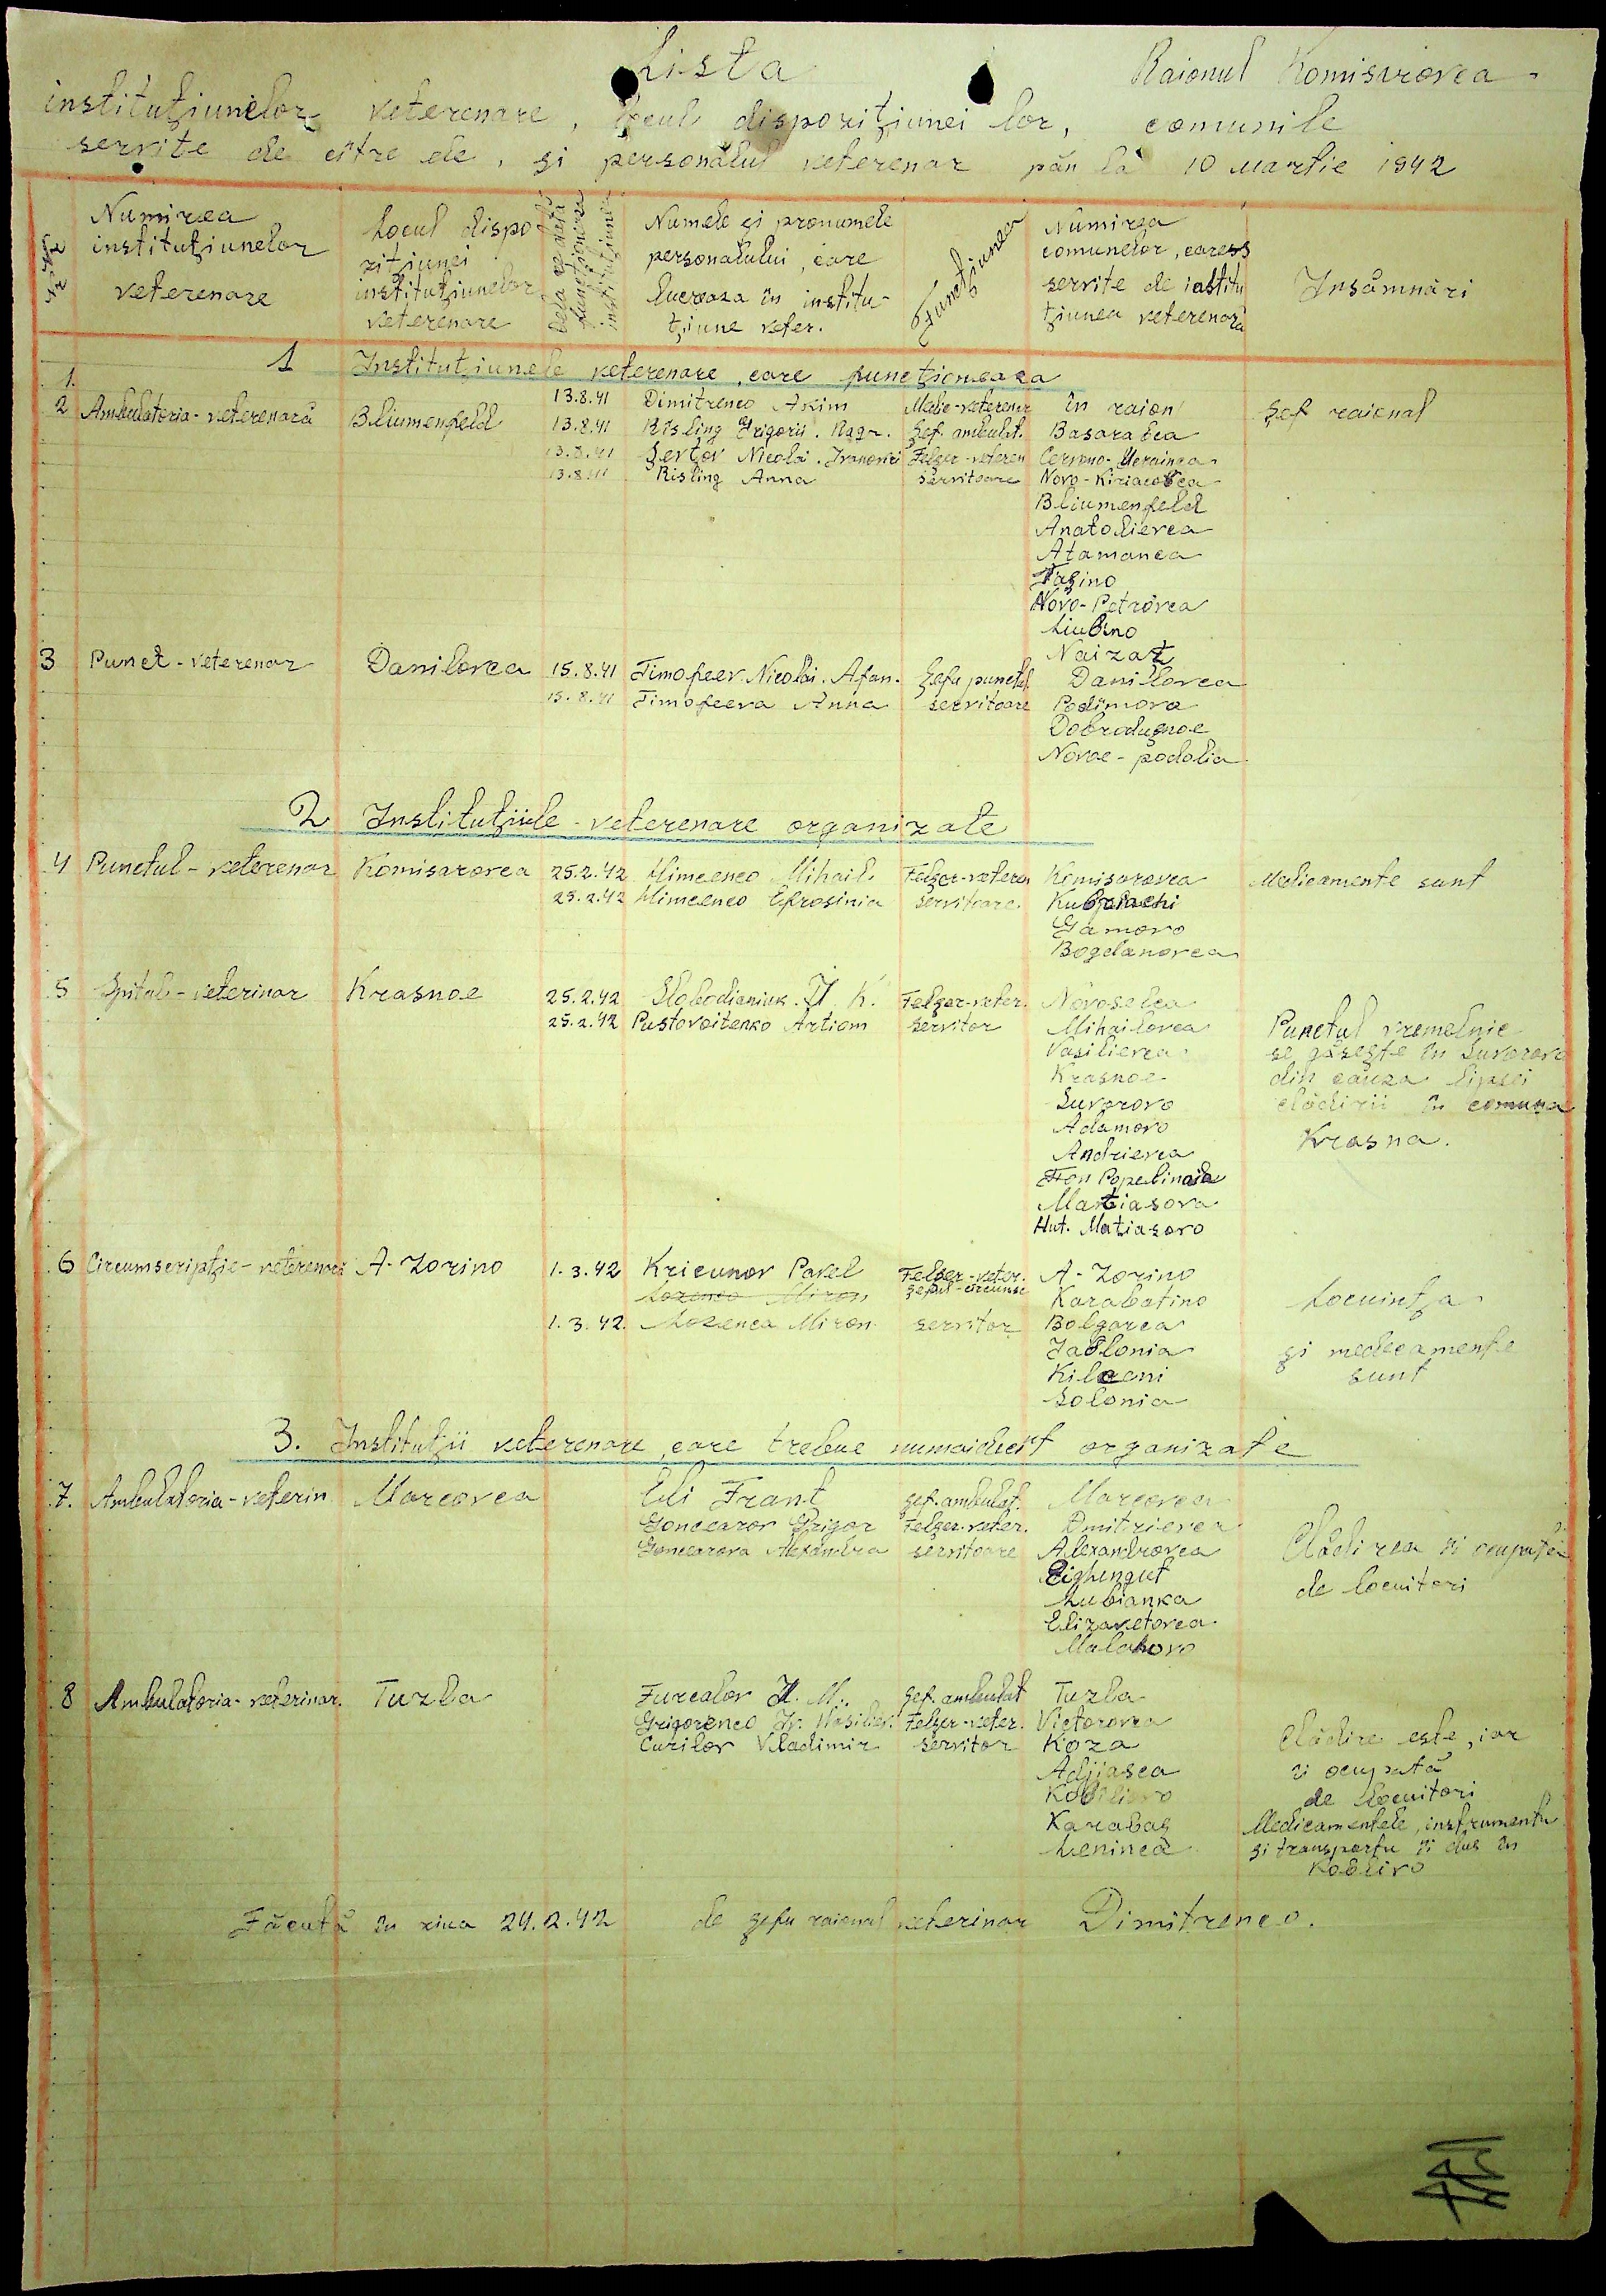 Lista Raionul Komisarovca
instituţiunelor veterenare, locul dispoziţiunei lor, comunile
servite de cître ele, şi personalul veterenar păn la 10 Martie 1942
№№ Numirea instituţiunelor veterenare
Locul dispoziţiunei instituţiunelor veterenare
Numele şi pronumele personalului, care lucreaza în instituţiune veter.
Funcţiunea
Numirea comunelor, care-s servite de institu ţiunea veterenară
Însămnări
1 Instituţiunele veterenare, care funcţioneaza
1. 13.8.41 Dimitrenco Akim Medic-veterenar în raion Şef raional
2 Ambulatoria-veterenară Bliumenfeld 13.8.41 Risling Grigorii Şef. ambulat. Basarabca
13.8.41 Şertov Nicolai Ivanovici Felşer-veteren Cervono-Ucrainca
13.8.41 Risling Anna servitoare Novo-Kiriacovca
Bliumenfeld
Anatolievca
Atamanca
Taşino
Novo-Petrovca
Liubino
Naizaţ
3 Punct-veterenar Danilovca 15.8.41 Timofeev Nicolai. Afan. Şefu punctul. Danilovca
15.8.41 Timofeeva Anna servitoare Podimova
Dobroduşnoe
Novae-podolia
2 Instituţiile-veterenare organizate
4 Punctul-veterenar Komisarovca 25.2.42 Climcenco Mihail Felşer-veteren Komisarovca Medicamente sunt
25.2.42 Climcenco Efrosinia servitoare. Kubriachi
Gamovo
Bogdanovca
5 Spital-veterinar Krasnoe 25.2.42 Slobodianiuk. I. K. Felşer-veter. Novoselca
25.2.42 Pustovoitenko Artiom servitor Mihailovca Punctul vremelnic
Vasilievca se găseşte în Suvorovo
Krasnoe din cauza lipsei
Suvorovo clădirii în comuna
Adamovo Krasna.
Andrievca
Martiasova
Hut. Matiasovo
6 Circumscripţie-veterenară A-Zorino 1.3.42 Kricunov Pavel Felşer-veter. şeful-circumsc A-Zorino
Lozenco Miron Karabatino Locuinţa
1.3.42. Lozenco Miron servitor Bolgarca
Iablonia şi medecamente
Kilozeni sunt
Solonia
3. Instituţii veterenare, care trebue numaidecît organizate
7. Ambulatoria-veterin Marcovca Eli Frant şef. ambulat. Marcovca
Goncearov Grigor Felşer-veter. Dmitrievca
Goncearova Alexandra servitoare Alexandrovca Clădirea îi ocupată
Eighengut de locuitori
Lubianka
Elizavetovca
Malahovo
8 Ambulatoria-veterinar. Tuzla Furcalov H. M. şef. ambulat Tuzla
Grigorenco Iv. Vasiliev. Felşer-veter. Victorovca Clădire este, iar
Curilov Vladimir servitor Koza îi ocupată
Adjiasca de locuitori
Kobilievo Medicamentele, instrumentu
Karabaş şi transportu îi dus în
Leninca Kobilevo
Făcută în ziua 24.2.42 de şefu raional veterinar Dimitrenco.